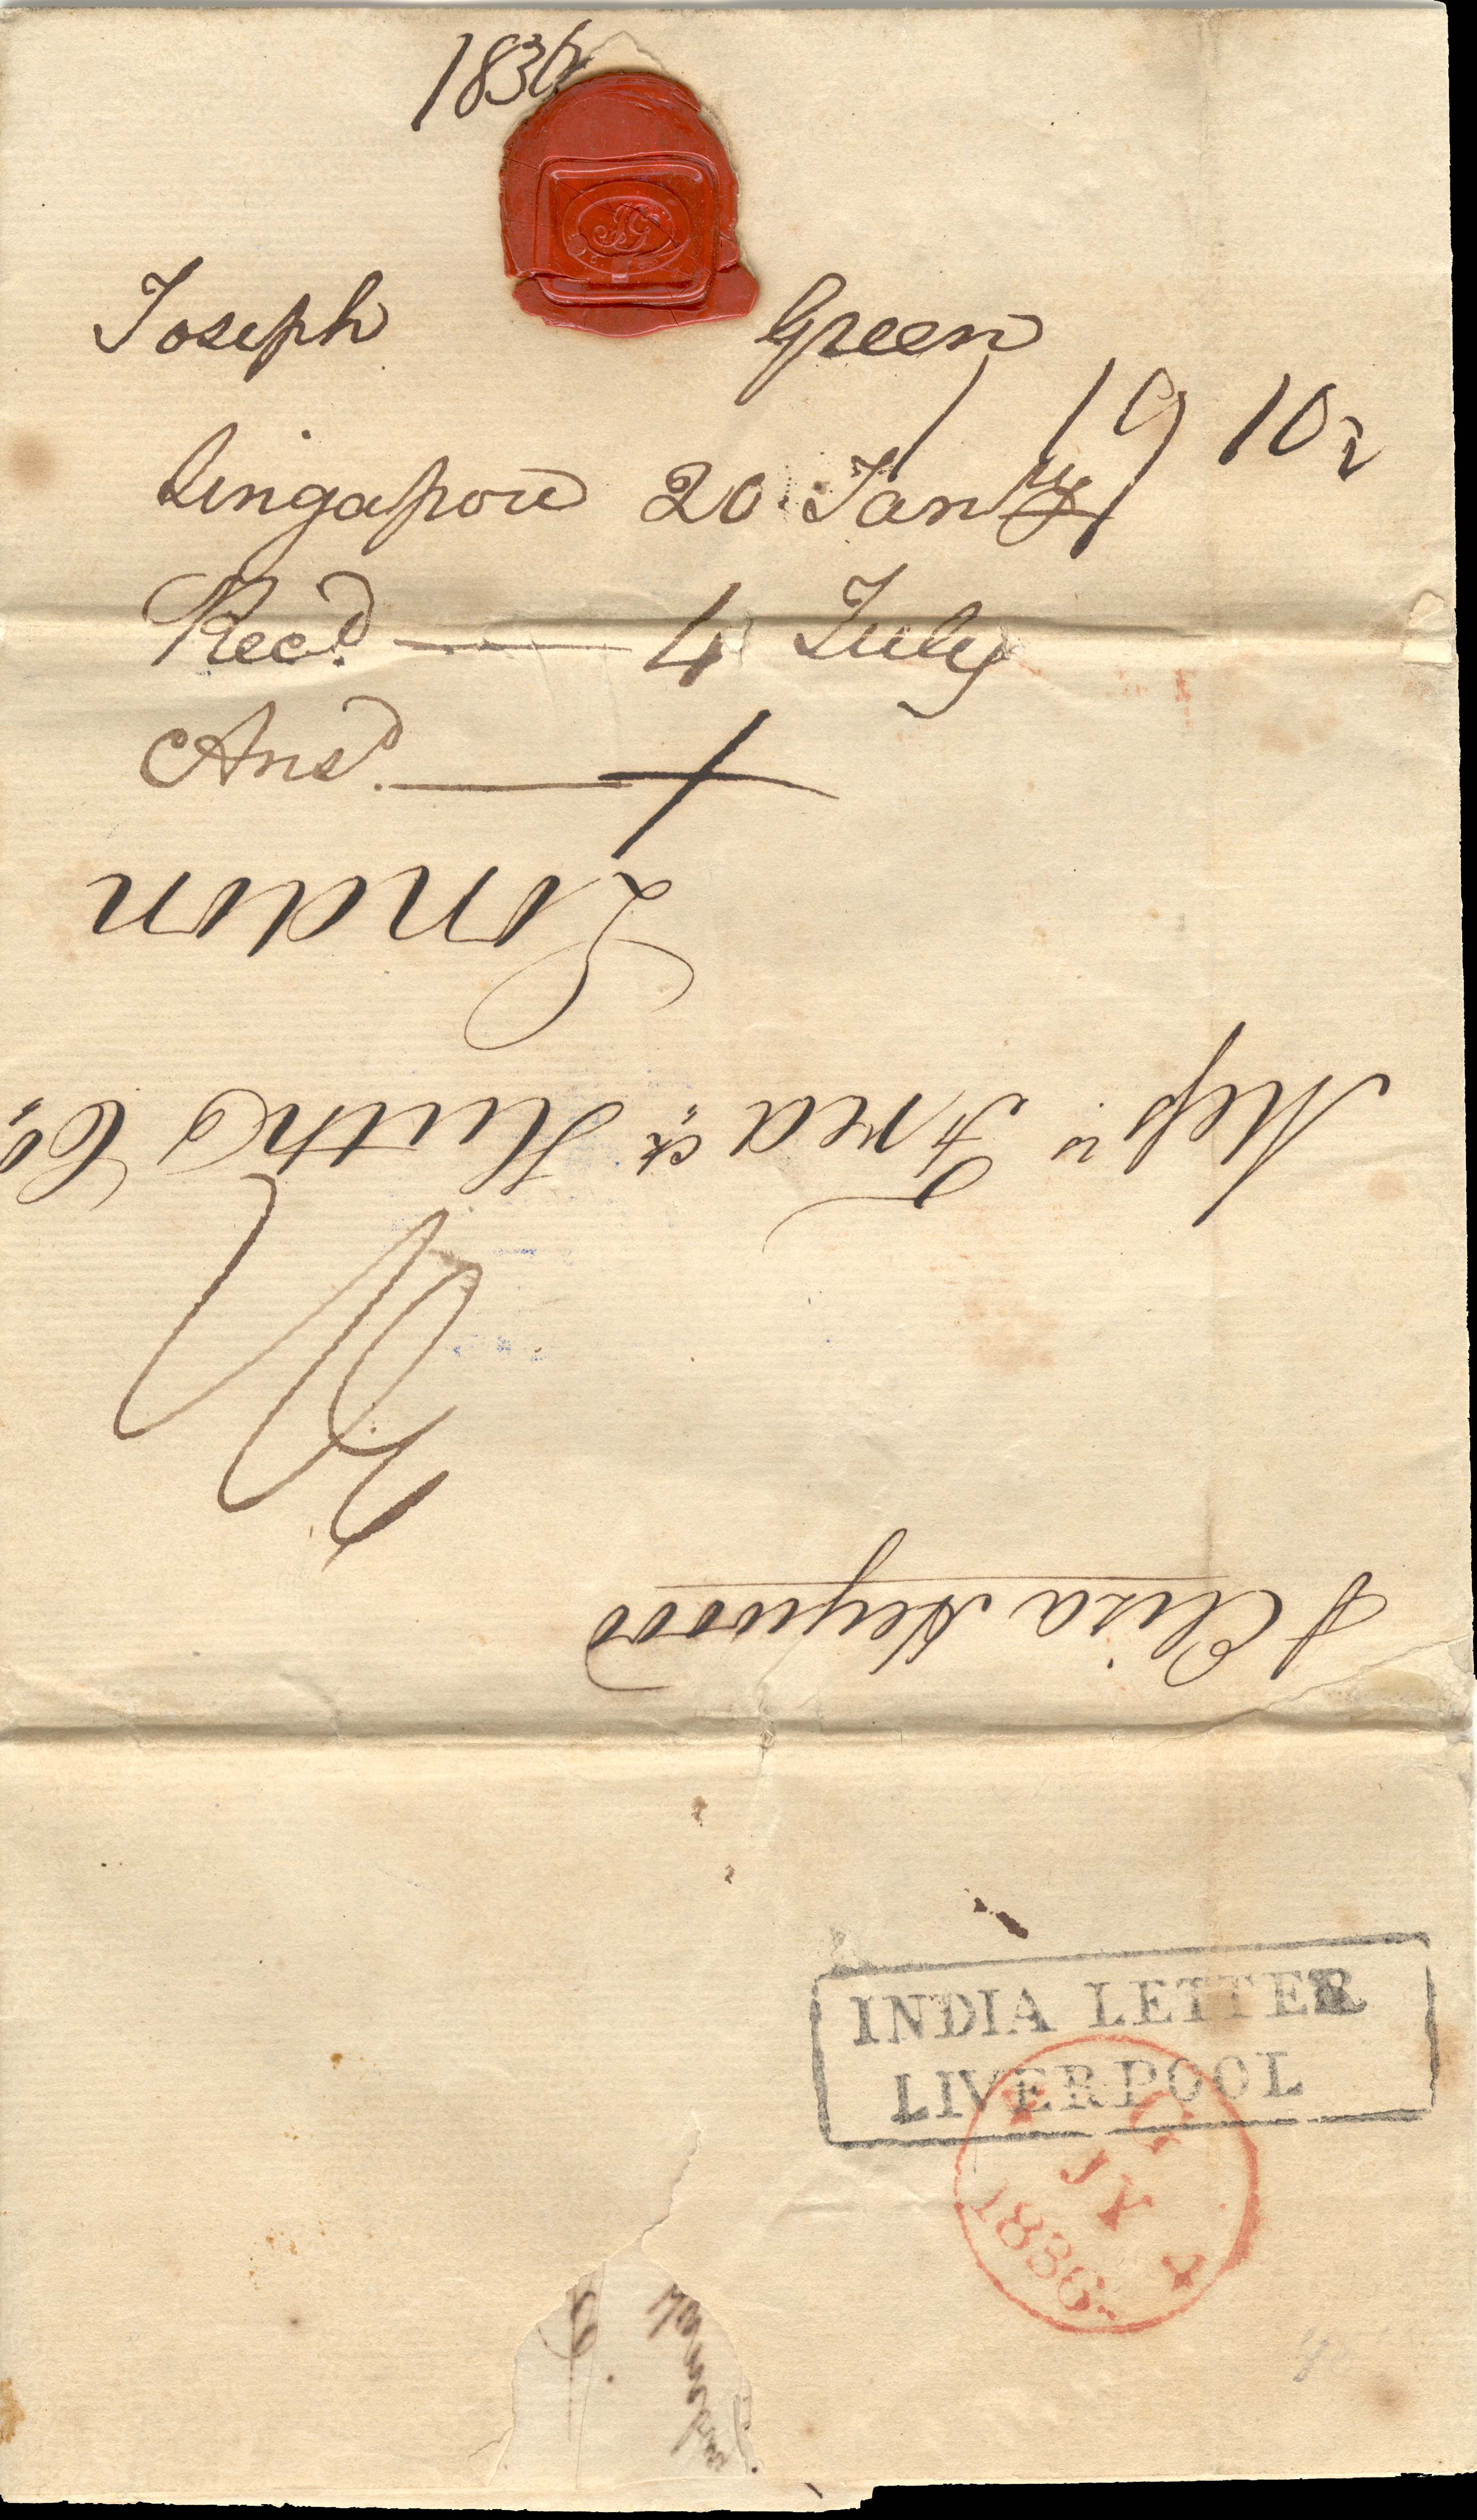 1836
JG
Joseph Green
Singapore 20 Jany
1/9 10
Recd. 4 July
Ansd.
London
Messrs Fredck Huth & Co
p Eliza Heywood
INDIA LETTER
LIVERPOOL
G
JY 4
1836